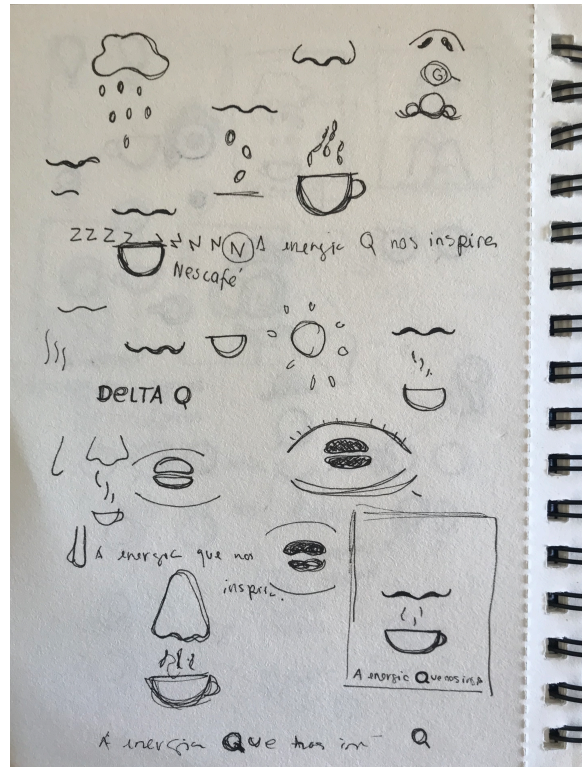 G
ZZZZ ZZNNN A energia Q nos inspira
Nescafé
DELTA Q
A energia que nos
inspira.
A energia Que nos inspira
A energia Que nos in Q